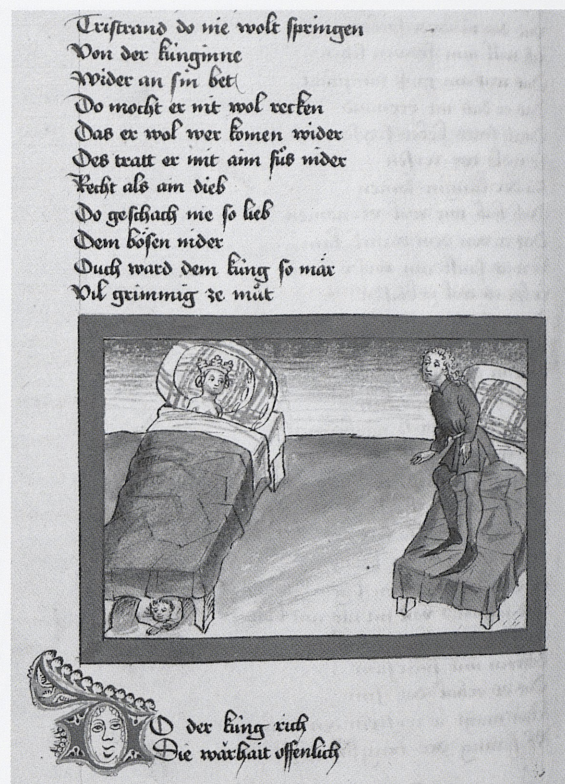 Tristrand do nie wolt springen
Von der künginne
Wider an sin bet
Do mocht er nit wol recken
Das er wol wer komen wider
Des tratt er mit aim fůs nider
Recht als ain dieb
Do geschach nie so lieb
Dem bösen nider
Ouch ward dem küng so mär
Vil grimmig ze můt
DO der küng rich
Die wärhait offenlich